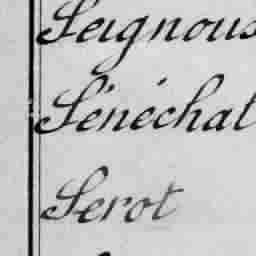 Seignous
Sénéchal
Serot